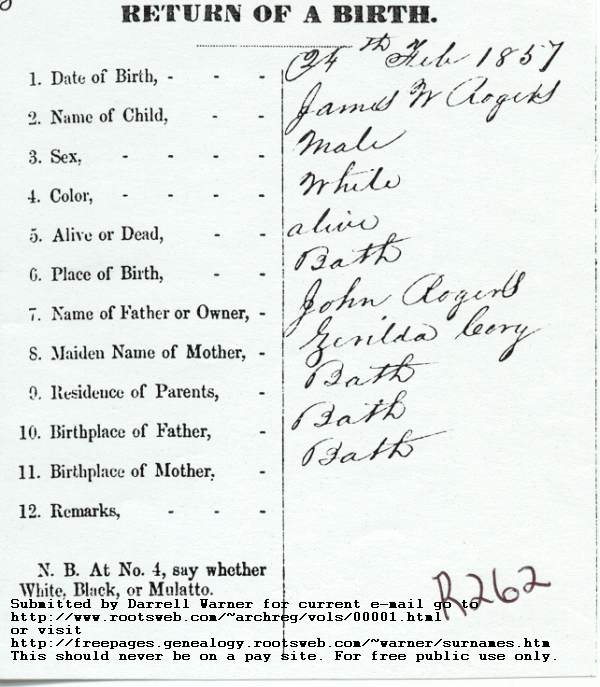 RETURN OF A BIRTH.
1. Date of Birth, - - - 24th Feb 1857
2. Name of Child, - - James W Rogers
3. Sex, - - - - Male
4. Color, - - - - White
5. Alive or Dead, - - alive
6. Place of Birth, - - Bath
7. Name of Father or Owner, - John Rogers
8. Maiden Name of Mother, - Zerilda Cory
9. Residence of Parents, - Bath
10. Birthplace of Father, - Bath
11. Birthplace of Mother, - Bath
12. Remarks, - - -
N. B. At No. 4, say whether
White, Black, or Mulatto.
R262
Submitted by Darrell Warner for current e-mail go to
http://www.rootsweb.com/~archreg/vols/00001.html
or visit
http://freepages.genealogy.rootsweb.com/~warner/surnames.htm
This should never be on a pay site. For free public use only.